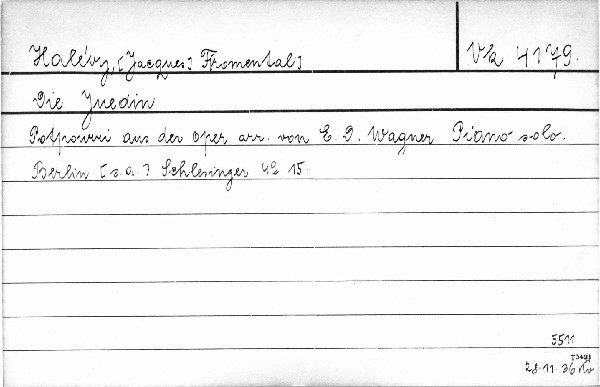 Halévy, [Jacques] Fromental]
Vk 4179.
Die Juedin
Potpourri aus der Oper arr. von E. D. Wagner Piano solo.
Berlin [s.a.] Schlesinger 4° 15.
5511
28.11.36